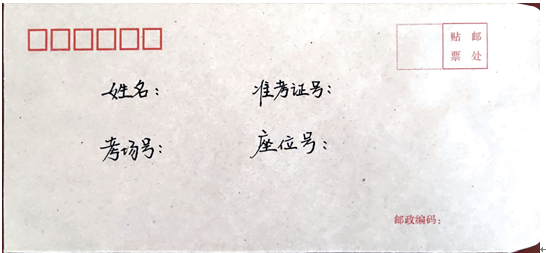 贴 邮
票 处
姓名： 准考证号：
考场号： 座位号：
邮政编码：